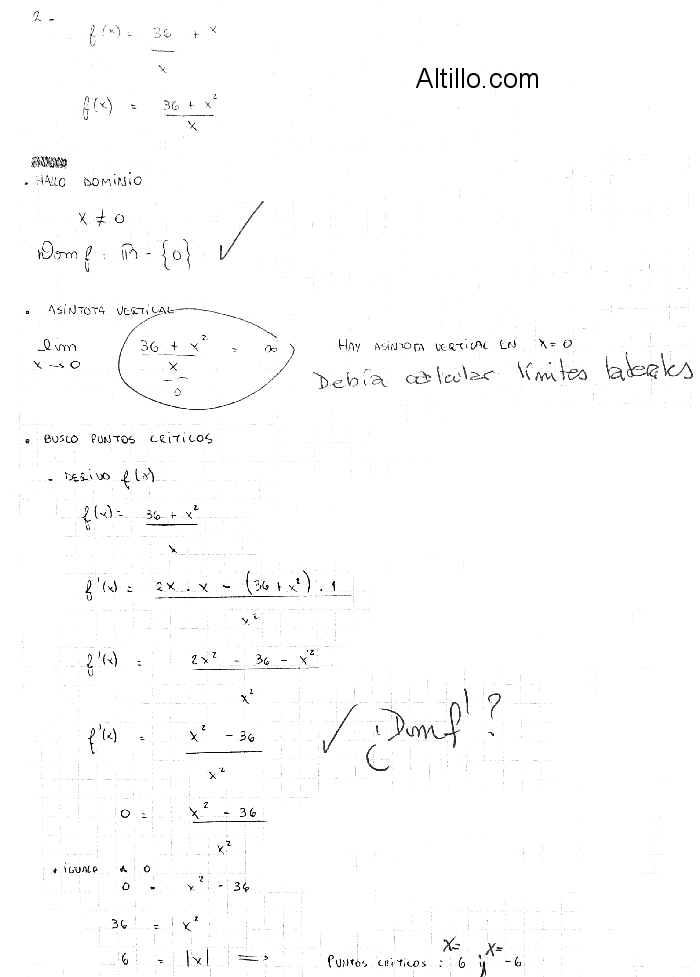 2-
f(x) = 36/x + x
Altillo.com
f(x) = (36 + x²)/x
• HALLO DOMINIO
x ≠ 0
Dom f: ℝ - {0} ✓
• ASINTOTA VERTICAL
lim x→0 (36 + x²)/x = ∞ HAY ASINTOTA VERTICAL EN x = 0
→ 0
Debía calcular límites laterales
• BUSCO PUNTOS CRITICOS
- DERIVO f(x)
f(x) = (36 + x²)/x
f'(x) = (2x . x - (36 + x²) . 1)/x²
f'(x) = (2x² - 36 - x²)/x²
f'(x) = (x² - 36)/x² ✓ ¿Dom f'?
0 = (x² - 36)/x²
• IGUALO A 0
0 = x² - 36
36 = x²
6 = |x| ⟹ PUNTOS CRITICOS: x= 6 y x= -6